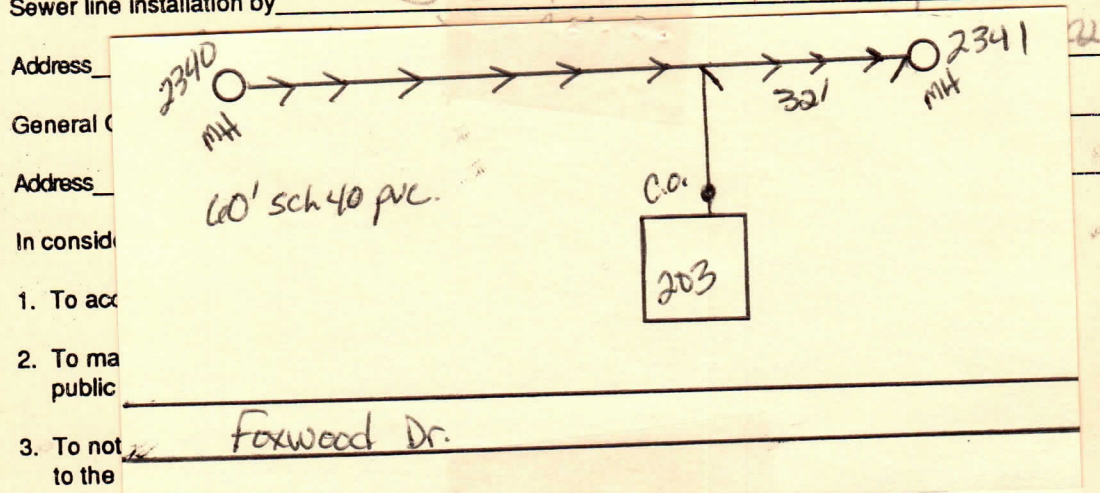 Sewer line installation by
Address
General C
Address
In consid
1. To acc
2. To ma
public
3. To not
to the
2340
MH
2341
MH
32'
60' sch 40 pvc.
C.O.
203
Foxwood Dr.